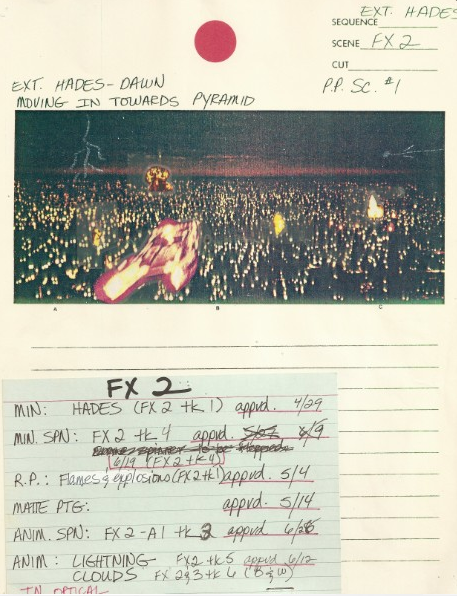 EXT. HADES
SEQUENCE
SCENE FX 2
CUT
P.P. SC. #1
EXT. HADES - DAWN
MOVING IN TOWARDS PYRAMID
A B C
FX 2
MIN: HADES (FX 2 tk 1) appvd. 4/29
MIN. SPN: FX 2 tk 4 appvd. 6/9
6/19 (FX2 tk 4)
R.P.: Flames & explosions (FX2 tk1) appvd. 5/14
MATTE PTG: appvd. 5/14
ANIM. SPN: FX 2-A1 tk 3 appvd
ANIM: LIGHTNING FX2 tk 5 appvd 6/12
CLOUDS FX 2&3 tk 6 ("B&W)
IN OPTICAL